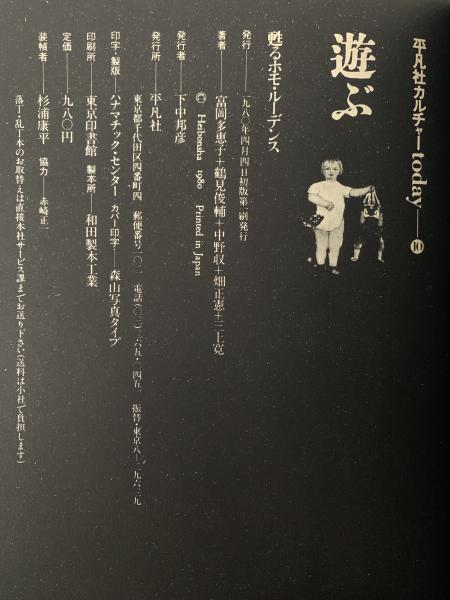 平凡社カルチャーtoday——⑩
遊ぶ
甦るホモ・ルーデンス
発行——一九八〇年四月四日初版第一刷発行
著者——富岡多恵子＋鶴見俊輔＋中野収＋畑正憲＋三上寛
© Heibonsha 1980 Printed in Japan
発行者——下中邦彦
発行所——平凡社
東京都千代田区四番町四 郵便番号一〇二 電話(〇三)二六五・〇四五一 振替・東京八—二九六三九
印字・製版——ハナマチック・センター カバー印字——森山写真タイプ
印刷所——東京印書館 製本所——和田製本工業
定価——九八〇円
装幀者——杉浦康平 協力——赤崎正一
落丁・乱丁本のお取替えは直接本社サービス課までお送り下さい(送料は小社で負担します)